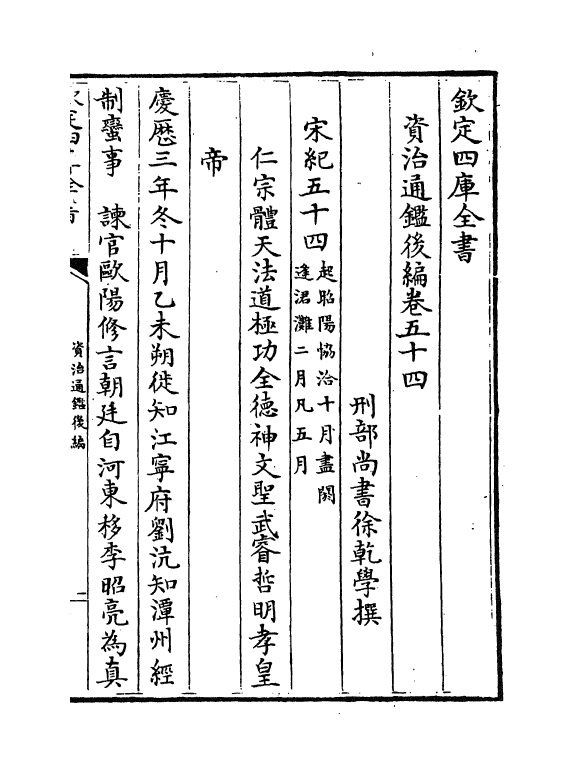 欽定四庫全書
資治通鑑後編卷五十四
刑部尚書徐乾學撰
宋紀五十四起昭陽協洽十月盡閼
逢涒灘二月凡五月
仁宗體天法道極功全德神文聖武睿哲明孝皇
帝
慶厯三年冬十月乙未朔徙知江寧府劉沆知潭州經
制蠻事　諫官歐陽修言朝廷自河東移李昭亮為真
資治通鑑後編